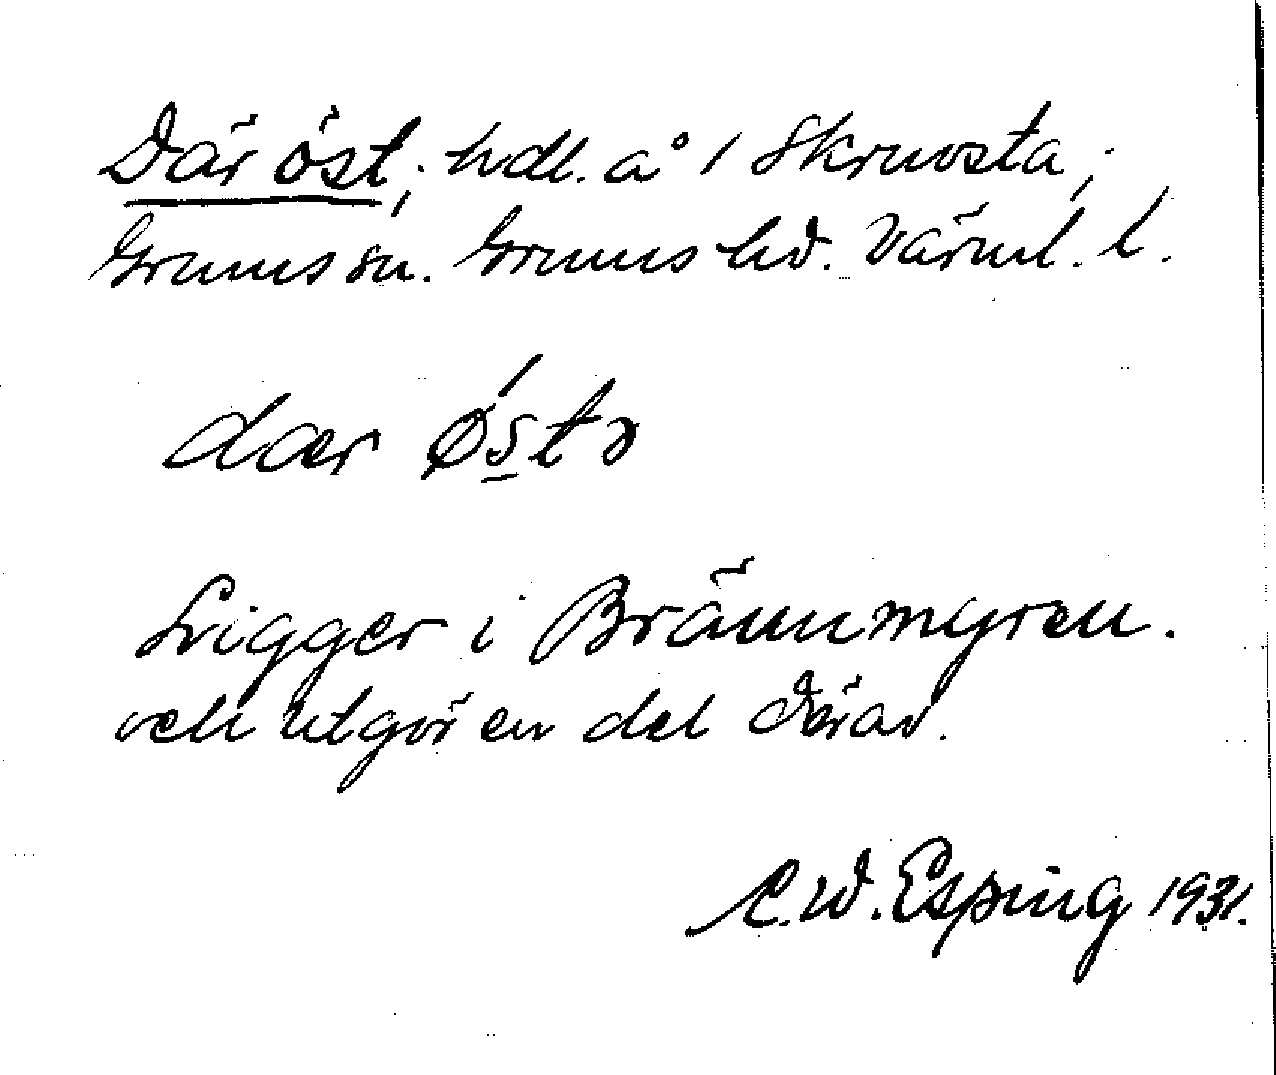 Där öst; hdl. å 1 Skruvsta;
Grums sn. Grums hd. Värml. l.
dær østə
Ligger i Brännmyren.
och utgör en del därav.
C.W. Esping 1931.